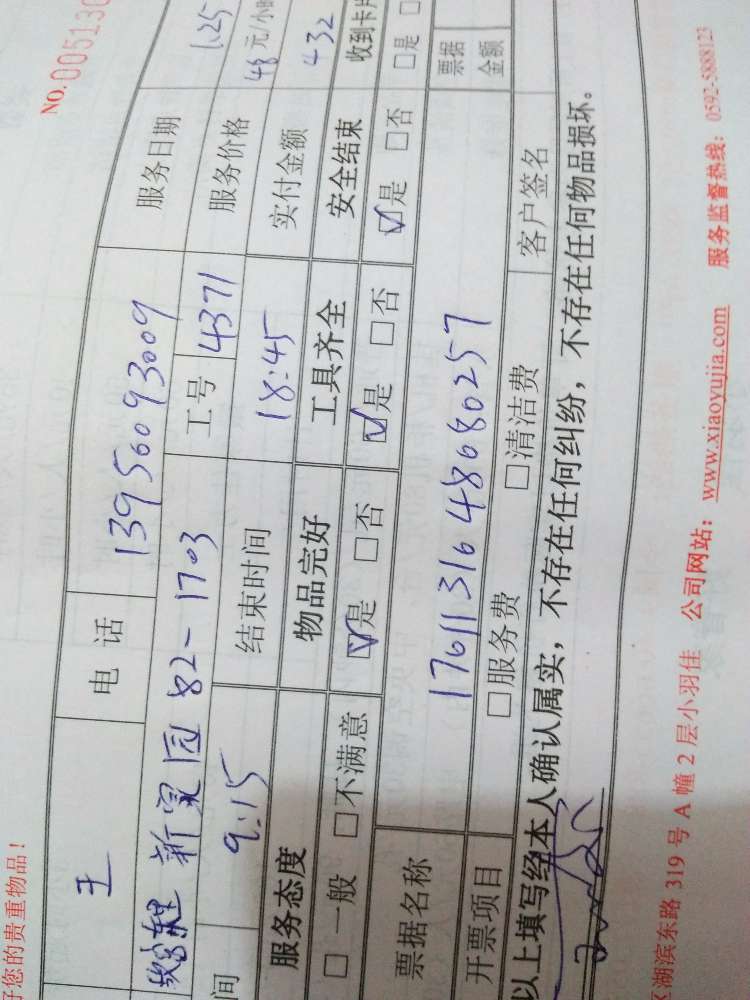 好您的贵重物品！ NO.005130
王 电 话 13956093009 服务日期 1.25
新家园 82-1703 工号 4371 服务价格 48 元/小时
间 9:15 结束时间 18:45 实付金额 432
服务态度 物品完好 工具齐全 安全结束 收到卡片
□ 一般 □不满意 ☑是 □否 ☑是 □否 ☑是 □否 □是 □
票据名称 1761131648680257 票据金额
开票项目 □服务费 □清洁费 客户签名
以上填写经本人确认属实，不存在任何纠纷，不存在任何物品损坏。
区湖滨东路 319 号 A 幢 2 层小羽佳 公司网站：www.xiaoyujia.com 服务监督热线：0592-5888123